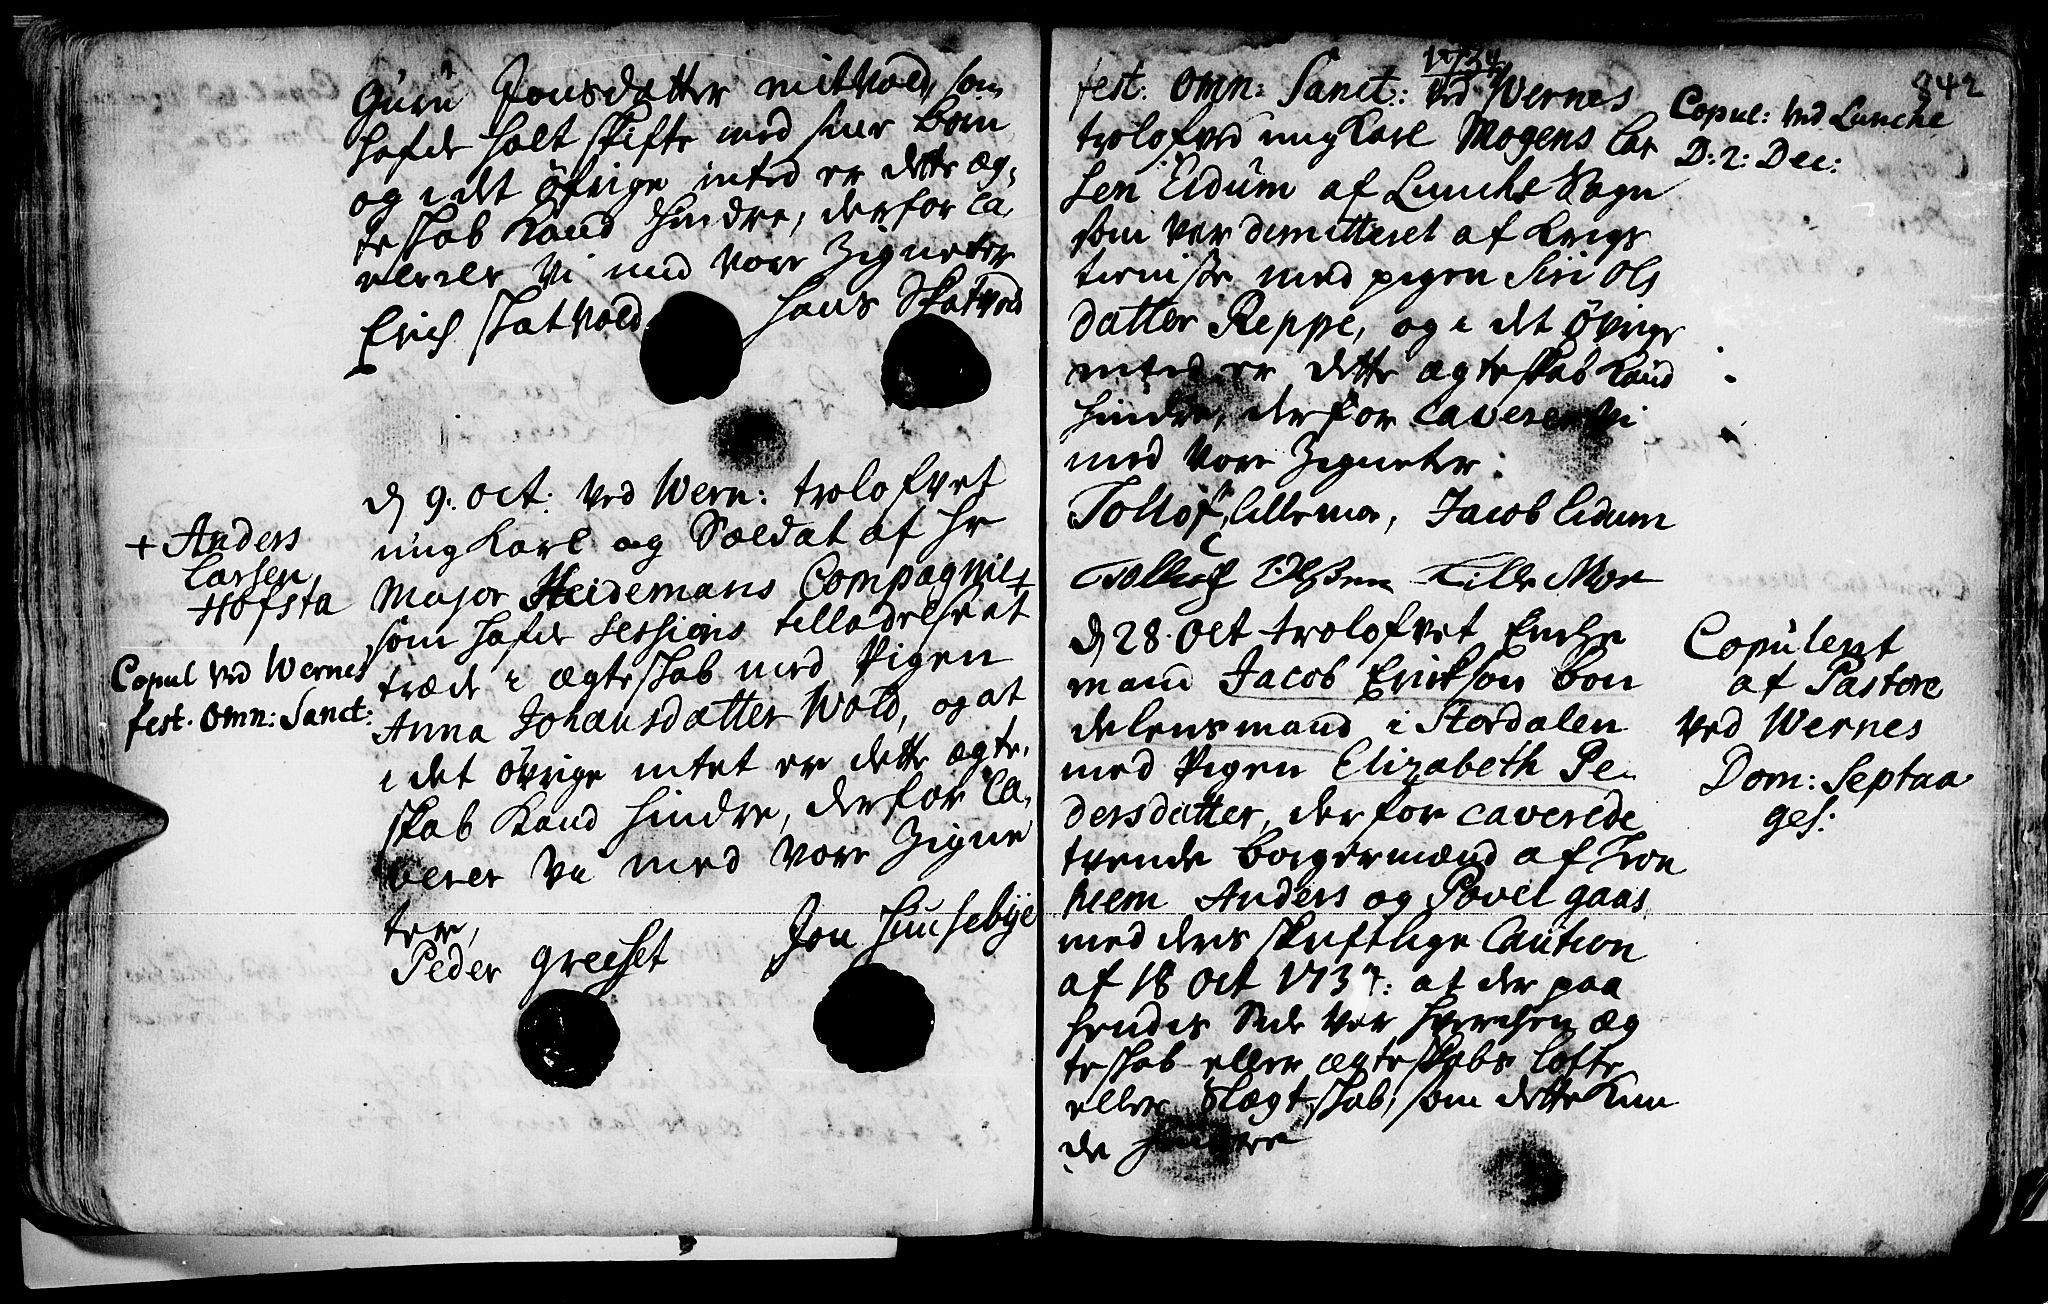 Guru Jonsdatter mitvold, som
hafde holt skifte med sine børn
og i det øfrige inted er dette æg,
teskab kand hindre, derfor ca,
verer vi med vore Zigneter
Erich Skatvold Hans Skatvold
d 9. Oct: ved Wern: trolofvet
ung karl og Soldat af Hr
Major Heidemans Compagnie +
som hafde Sessions tilladelse at
træde i ægteskab med Pigen
Anna Johansdatter Wold, og at
i det øvrige intet er dette ægte,
skab kand hindre, derfor Ca,
verer vi med vore Zigne
ter,
Peder Greelset Jon Huusebye
+ Anders
Larsen
Hofsta
Copul ved Wernes
fest. Omn: Sanct:
1734
342
fest: Omn: Sanct: ved Wernes
trolofved ung karl Mogens Lar
sen Eidum af Lunche Sogn
som var demitteret af krigs
tieniste med pigen Siri Ols
datter Reppe, og i det øvrige
inted er dette ægteskab kand
hindre, derfor caverer vi
med vore Zigneter:
Tollof Lillemoe, Jacob Eidum
Tolluf Olssen Lille Moe
d 28. Oct trolofvet Enche
mand Jacob Erickson Bon
delensmand i Stordalen
med Pigen Elizabeth Pe,
dersdatter, derfor caverede
tvende borgermænd af Tron
hiem Anders og Povel Gaas
med ders skriftlige Caution
af 18 Oct 1734: at der paa
hendes Side var hverchen Æg
teskab eller ægteskabs løfte
eller Slægtskab, som dette kun
de hindre
Copul: ved Lunche
D: 2: Dec:
Copulent
af Pastore
ved Wernes
Dom: Septua
ges: